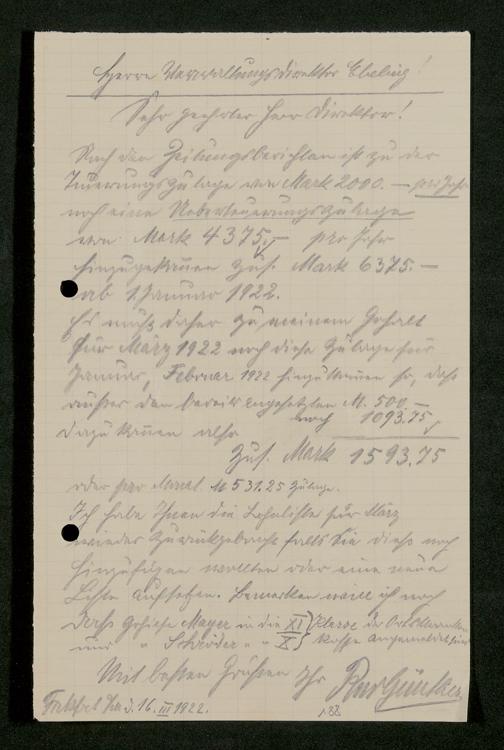 Herrn Verwaltungsdirektor Ebeling!
Sehr geehrter Herr Direktor!
Nach den Zeitungsberichten ist zu der
Teuerungszulage von Mark 2000.— pro Jahr
noch eine Ueberteuerungszulage
von Mark 4375.— pro Jahr
hinzugekommen zus. Mark 6375.—
ab 1. Januar 1922.
Es muß daher zu meinem Gehalt
für März 1922 noch diese Zulage für
Januar, Februar 1922 hinzukommen so, daß
außer den bereits angesetzten M. 500.—
noch 1093.75
dazu kommen also
zus. Mark 1593.75
oder pro Monat M 531.25 Zulage.
Ich habe Ihnen die Lohnliste für März
wieder zurückgebracht falls Sie dieß noch
hinzufügen wollten oder eine neue
Liste aufsetzen. Bemerken will ich noch
daß Gehilfe Mayer in die XI Klasse der Ortskranken
und " Schröder " " X kasse angemeldet sind
Mit besten Grüßen Ihr
Frankfurt a/M d. 16. III 1922.
188